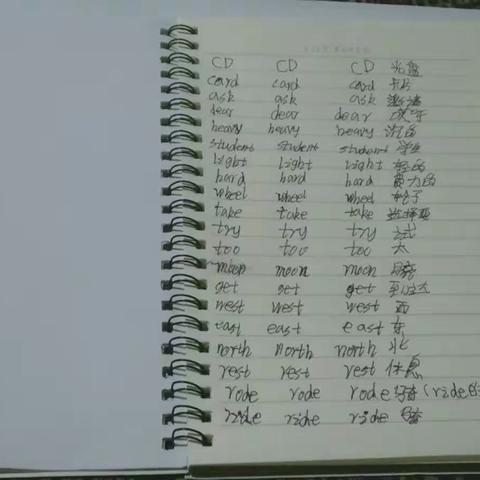 CD CD CD 光盘
card card card 卡片
ask ask ask 邀请
dear dear dear
heavy heavy heavy 沉的
student student student 学生
light light light 轻的
hard hard hard 费力的
wheel wheel wheel 轮子
take take take 选择要
try try try 试
too too too 太
moon moon moon 月亮
get get get 到达
west west west 西
east east east 东
north north north 北
rest rest rest 休息
rode rode rode 骑(ride的
ride ride ride 骑